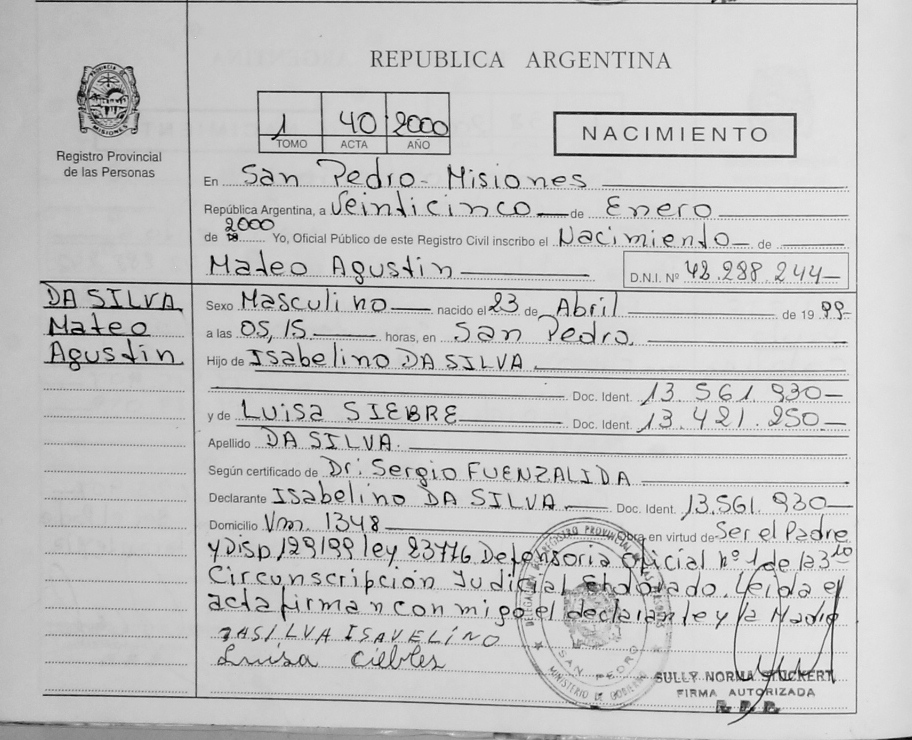 REPUBLICA ARGENTINA
PROVINCIA
MISIONES
Registro Provincial
de las Personas
1 40 2000
TOMO ACTA AÑO
NACIMIENTO
En San Pedro - Misiones
República Argentina, a Veinticinco de Enero
de 2000 Yo, Oficial Público de este Registro Civil inscribo el Nacimiento de
Mateo Agustin D.N.I. Nº 42.288.244
DA SILVA
Mateo
Agustin
Sexo Masculino nacido el 23 de Abril de 1999
a las 05,15 horas, en San Pedro.
Hijo de Isabelino DA SILVA
Doc. Ident. 13.561.930
y de Luisa SIEBRE Doc. Ident. 13.421.250
Apellido DA SILVA.
Según certificado de Dr: Sergio FUENZALIDA
Declarante Isabelino DA SILVA Doc. Ident. 13.561.930
Domicilio Vm. 1348 Obra en virtud de Ser el Padre
y Disp. 129/99 ley 23776 Defensoria Oficial nº 1 de la 3
Circunscripción Judicial Eldorado. Leida el
acta firman conmigo el declarante y la Madre
DASILVA ISAVELINO
Luisa Ciebles
SAN PEDRO
MINISTERIO DE GOBIERNO
SULLY NORMA STUCKERT
FIRMA AUTORIZADA